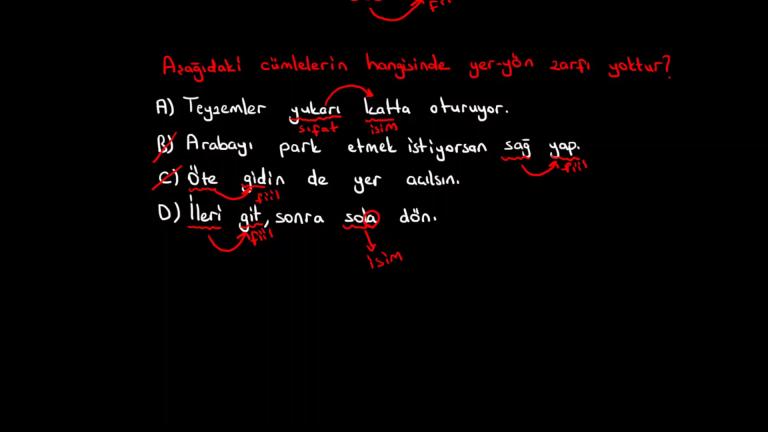 fiil
Aşağıdaki cümlelerin hangisinde yer-yön zarfı yoktur?
A) Teyzemler yukarı katta oturuyor.
sıfat isim
B) Arabayı park etmek istiyorsan sağ yap.
fiil
C) Öte gidin de yer açılsın.
fiil
D) İleri git, sonra sola dön.
fiil
isim